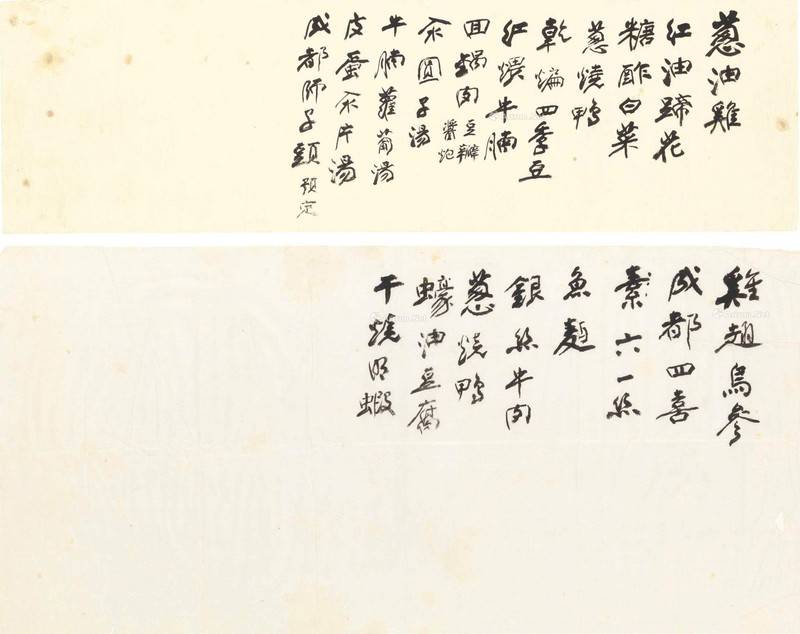 蔥油雞
紅油蹄花
糖酢白菜
蔥燒鴨
乾煸四季豆
紅煨牛腩
回鍋肉 豆瓣 醬炮
汆圓子湯
牛腩蘿蔔湯
皮蛋汆片湯
成都獅子頭 預定
雞翅烏參
成都四喜
素六一絲
魚麵
銀絲牛肉
蔥燒鴨
蠔油豆腐
干燒明蝦